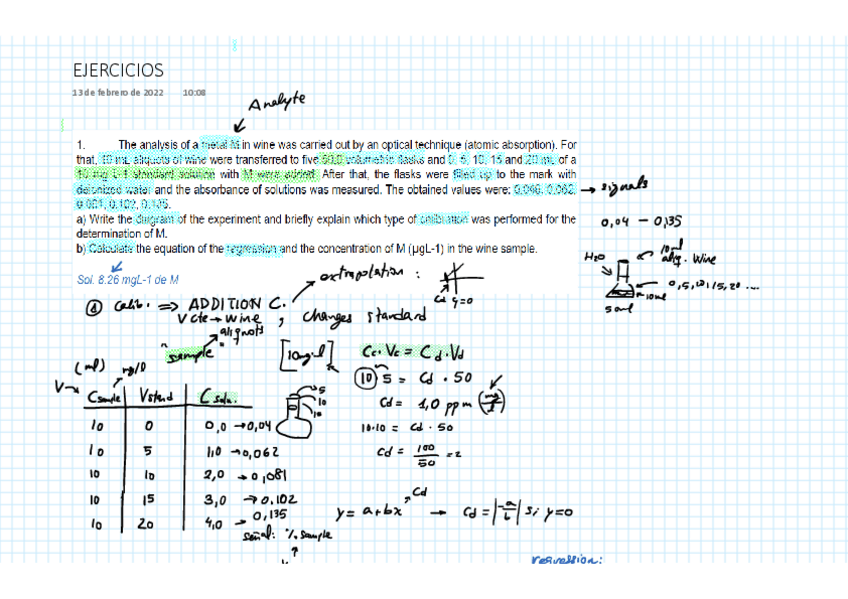 EJERCICIOS
13 de febrero de 2022 10:08
Analyte
1. The analysis of a metal M in wine was carried out by an optical technique (atomic absorption). For
that, 10 mL aliquots of wine were transferred to five 50.0 volumetric flasks and 0, 5, 10, 15 and 20 mL of a
10 mg L-1 standard solution with M were added. After that, the flasks were filled up to the mark with
deionized water and the absorbance of solutions was measured. The obtained values were: 0.062,
0.081, 0.102, 0.135.
→ signals
a) Write the diagram of the experiment and briefly explain which type of calibration was performed for the
determination of M.
b) Calculate the equation of the regression and the concentration of M (µgL-1) in the wine sample.
Sol. 8.26 mgL-1 de M
0,04 - 0,135
H2O
10ml
aliq. wine
0,5,10,15,20 ...
10ml
50ml
a Calib. => ADDITION C.
extrapolation:
Cd y=0
V cte → wine ; changes standard
aliquots
"sample"
[10mg·l]
Cc·Vc = Cd·Vd
10 5 = Cd · 50
Cd = 1,0 ppm (mg/l)
10·10 = Cd · 50
Cd = 100/50 = 2
(ml) mg/l
V → Csample Vstand Csolu.
5
10
10
10 0 0,0 → 0,04
10 5 1,0 → 0,062
10 10 2,0 → 0,081
10 15 3,0 → 0,102
10 20 4,0 → 0,135
señal: % sample
y = a+bx Cd → Cd = |-a/b| si y=0
regression: